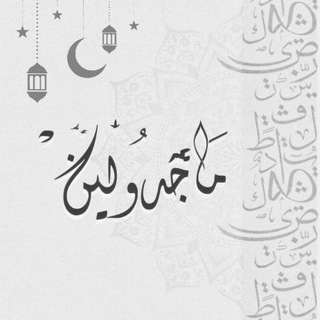 مَاجدُولين